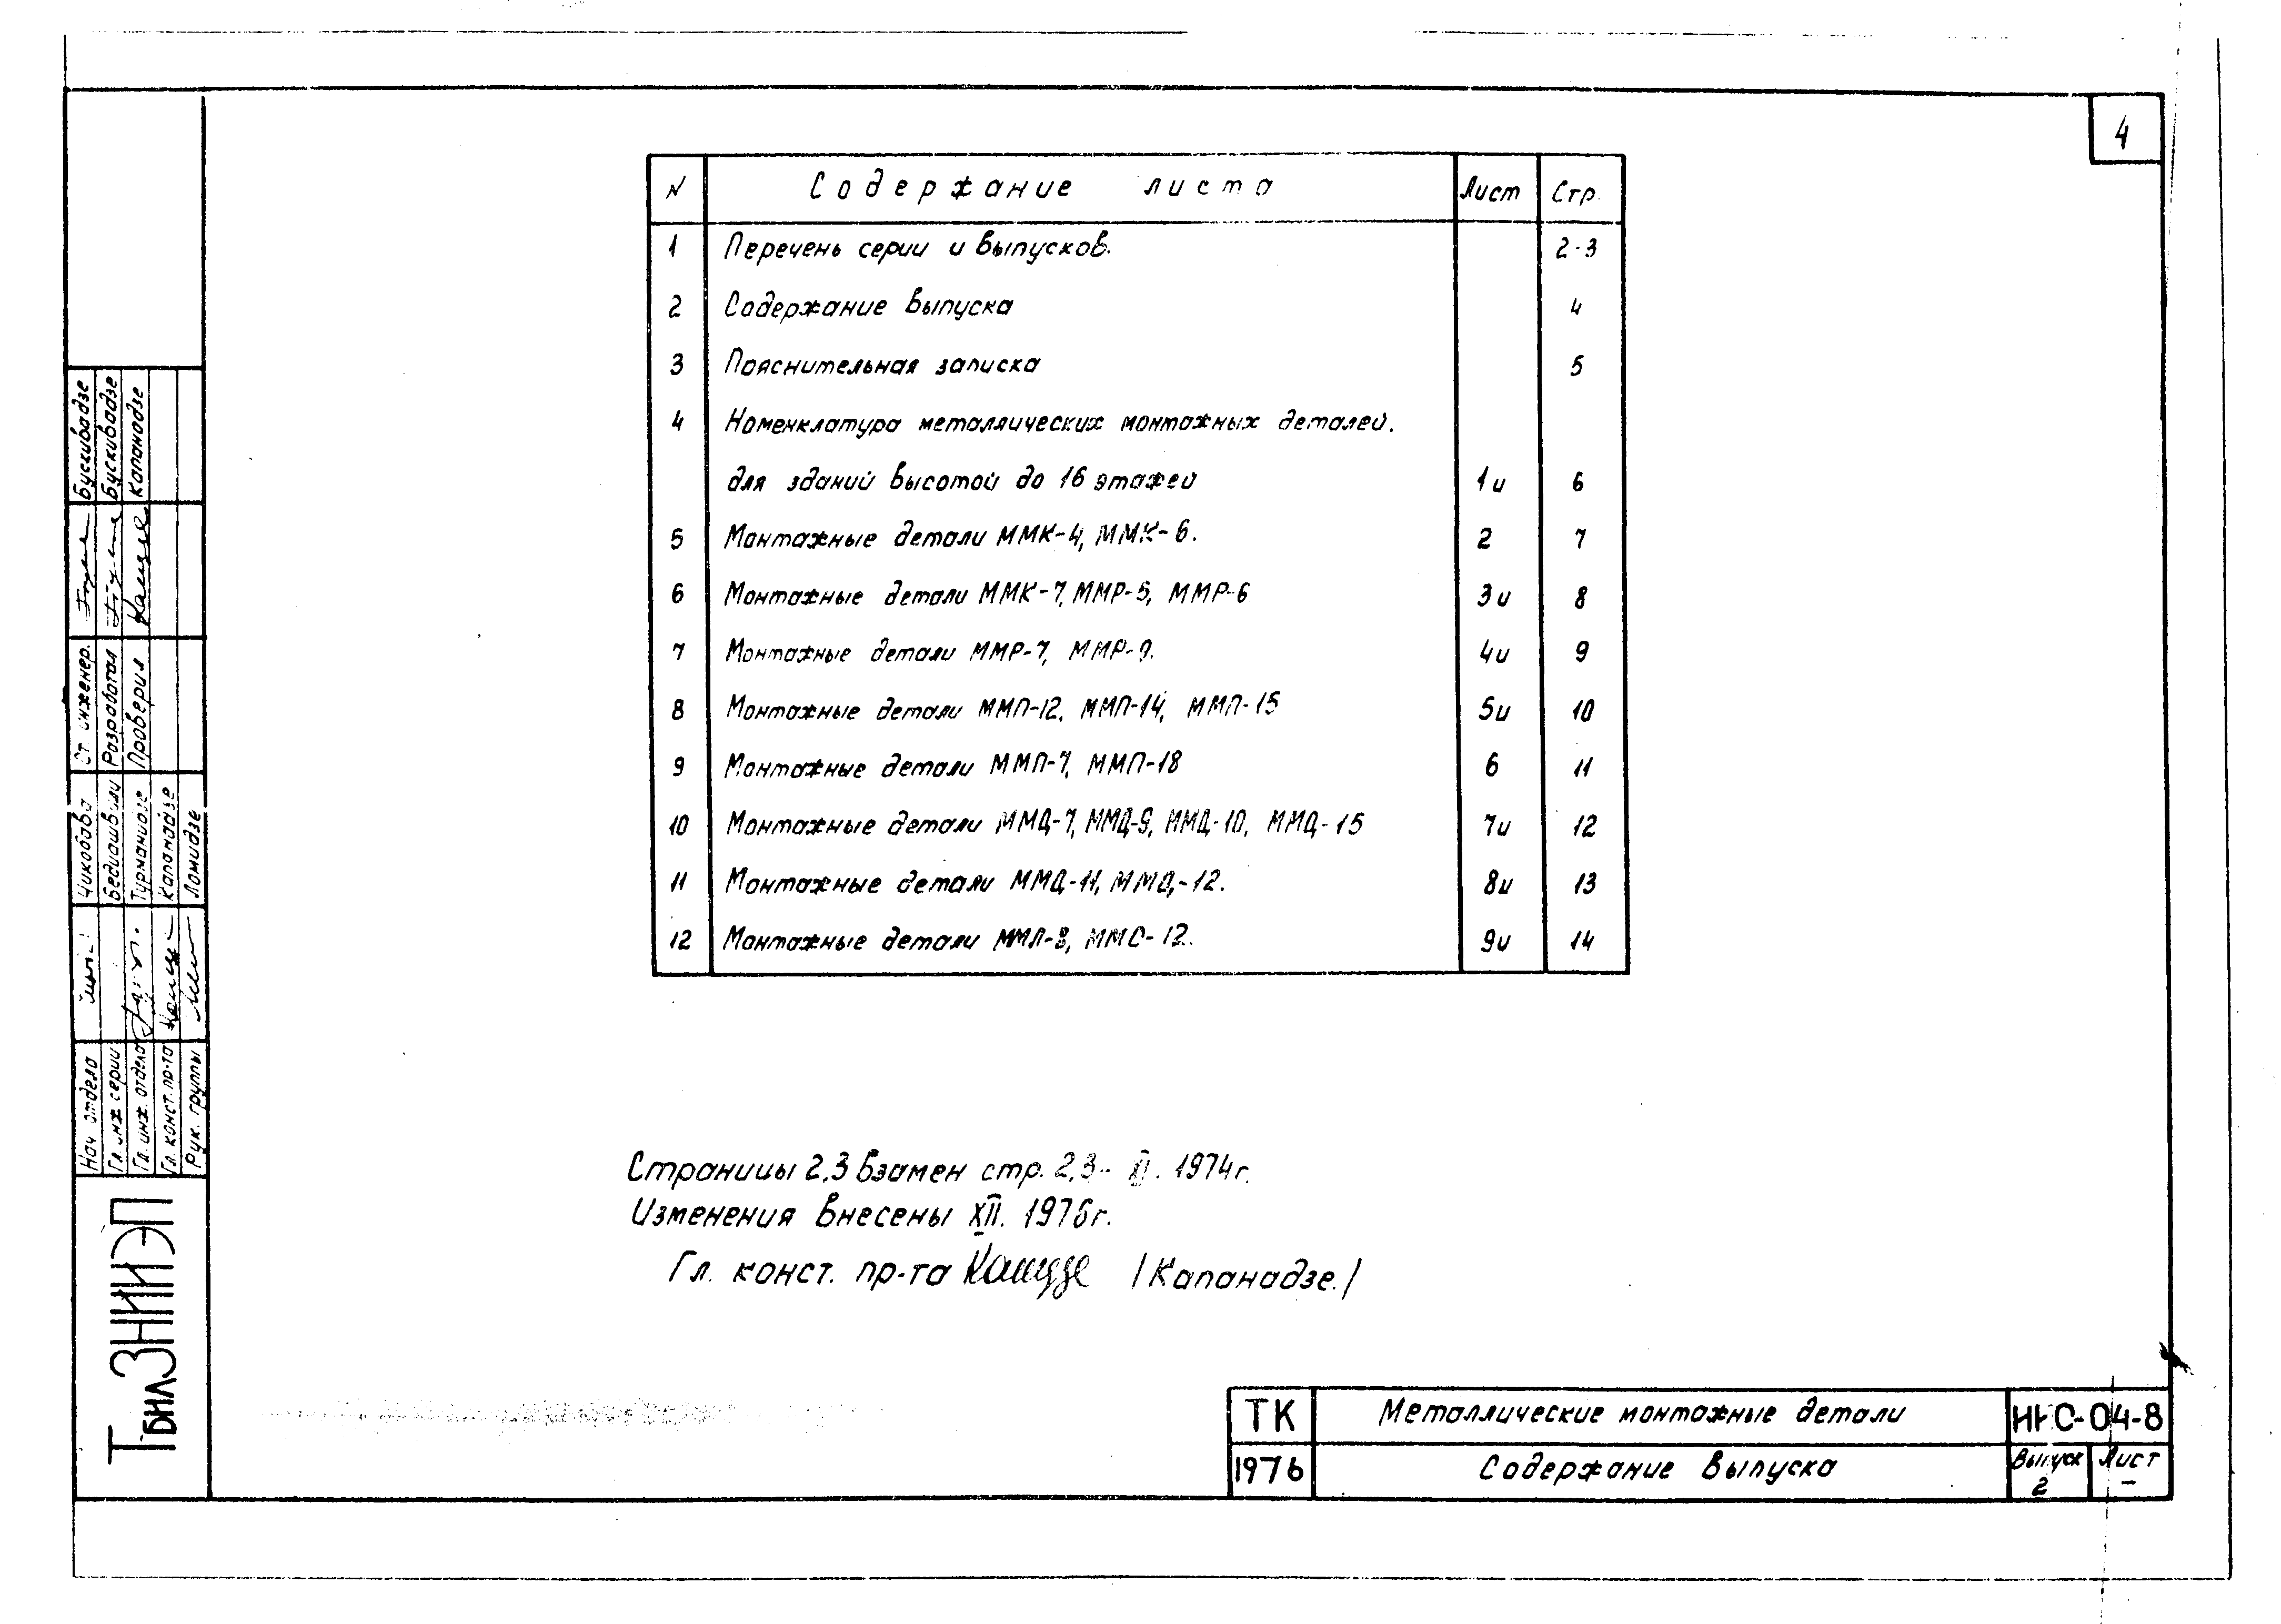 4
N Содержание листа Лист Стр.
1 Перечень серии и выпусков. 2-3
2 Содержание выпуска 4
3 Пояснительная записка 5
4 Номенклатура металлических монтажных деталей.
для зданий высотой до 16 этажей 1и 6
5 Монтажные детали ММК-4, ММК-6. 2 7
6 Монтажные детали ММК-7, ММР-5, ММР-6 3и 8
7 Монтажные детали ММР-7, ММР-9. 4и 9
8 Монтажные детали ММП-12, ММП-14, ММП-15 5и 10
9 Монтажные детали ММП-7, ММП-18 6 11
10 Монтажные детали ММД-7, ММД-9, ММД-10, ММД-15 7и 12
11 Монтажные детали ММД-11, ММД-12. 8и 13
12 Монтажные детали ММЛ-8, ММС-12. 9и 14
Страницы 2,3 взамен стр. 2,3- 1974г.
Изменения внесены XII. 1976г.
Гл. конст. пр-та /Капанадзе./
ТК Металлические монтажные детали ИИС-04-8
1976 Содержание выпуска Выпуск 2 Лист –
Ст. инженер. Бускивадзе
Разработал Бускивадзе
Проверил Капанадзе
Нач отдела Чикобава
Гл. инж серии Бедиашвили
Гл. инж. отдела Турманидзе
Гл. конст. пр-та Капанадзе
Рук. группы Ломидзе
ТбилЗНИИЭП